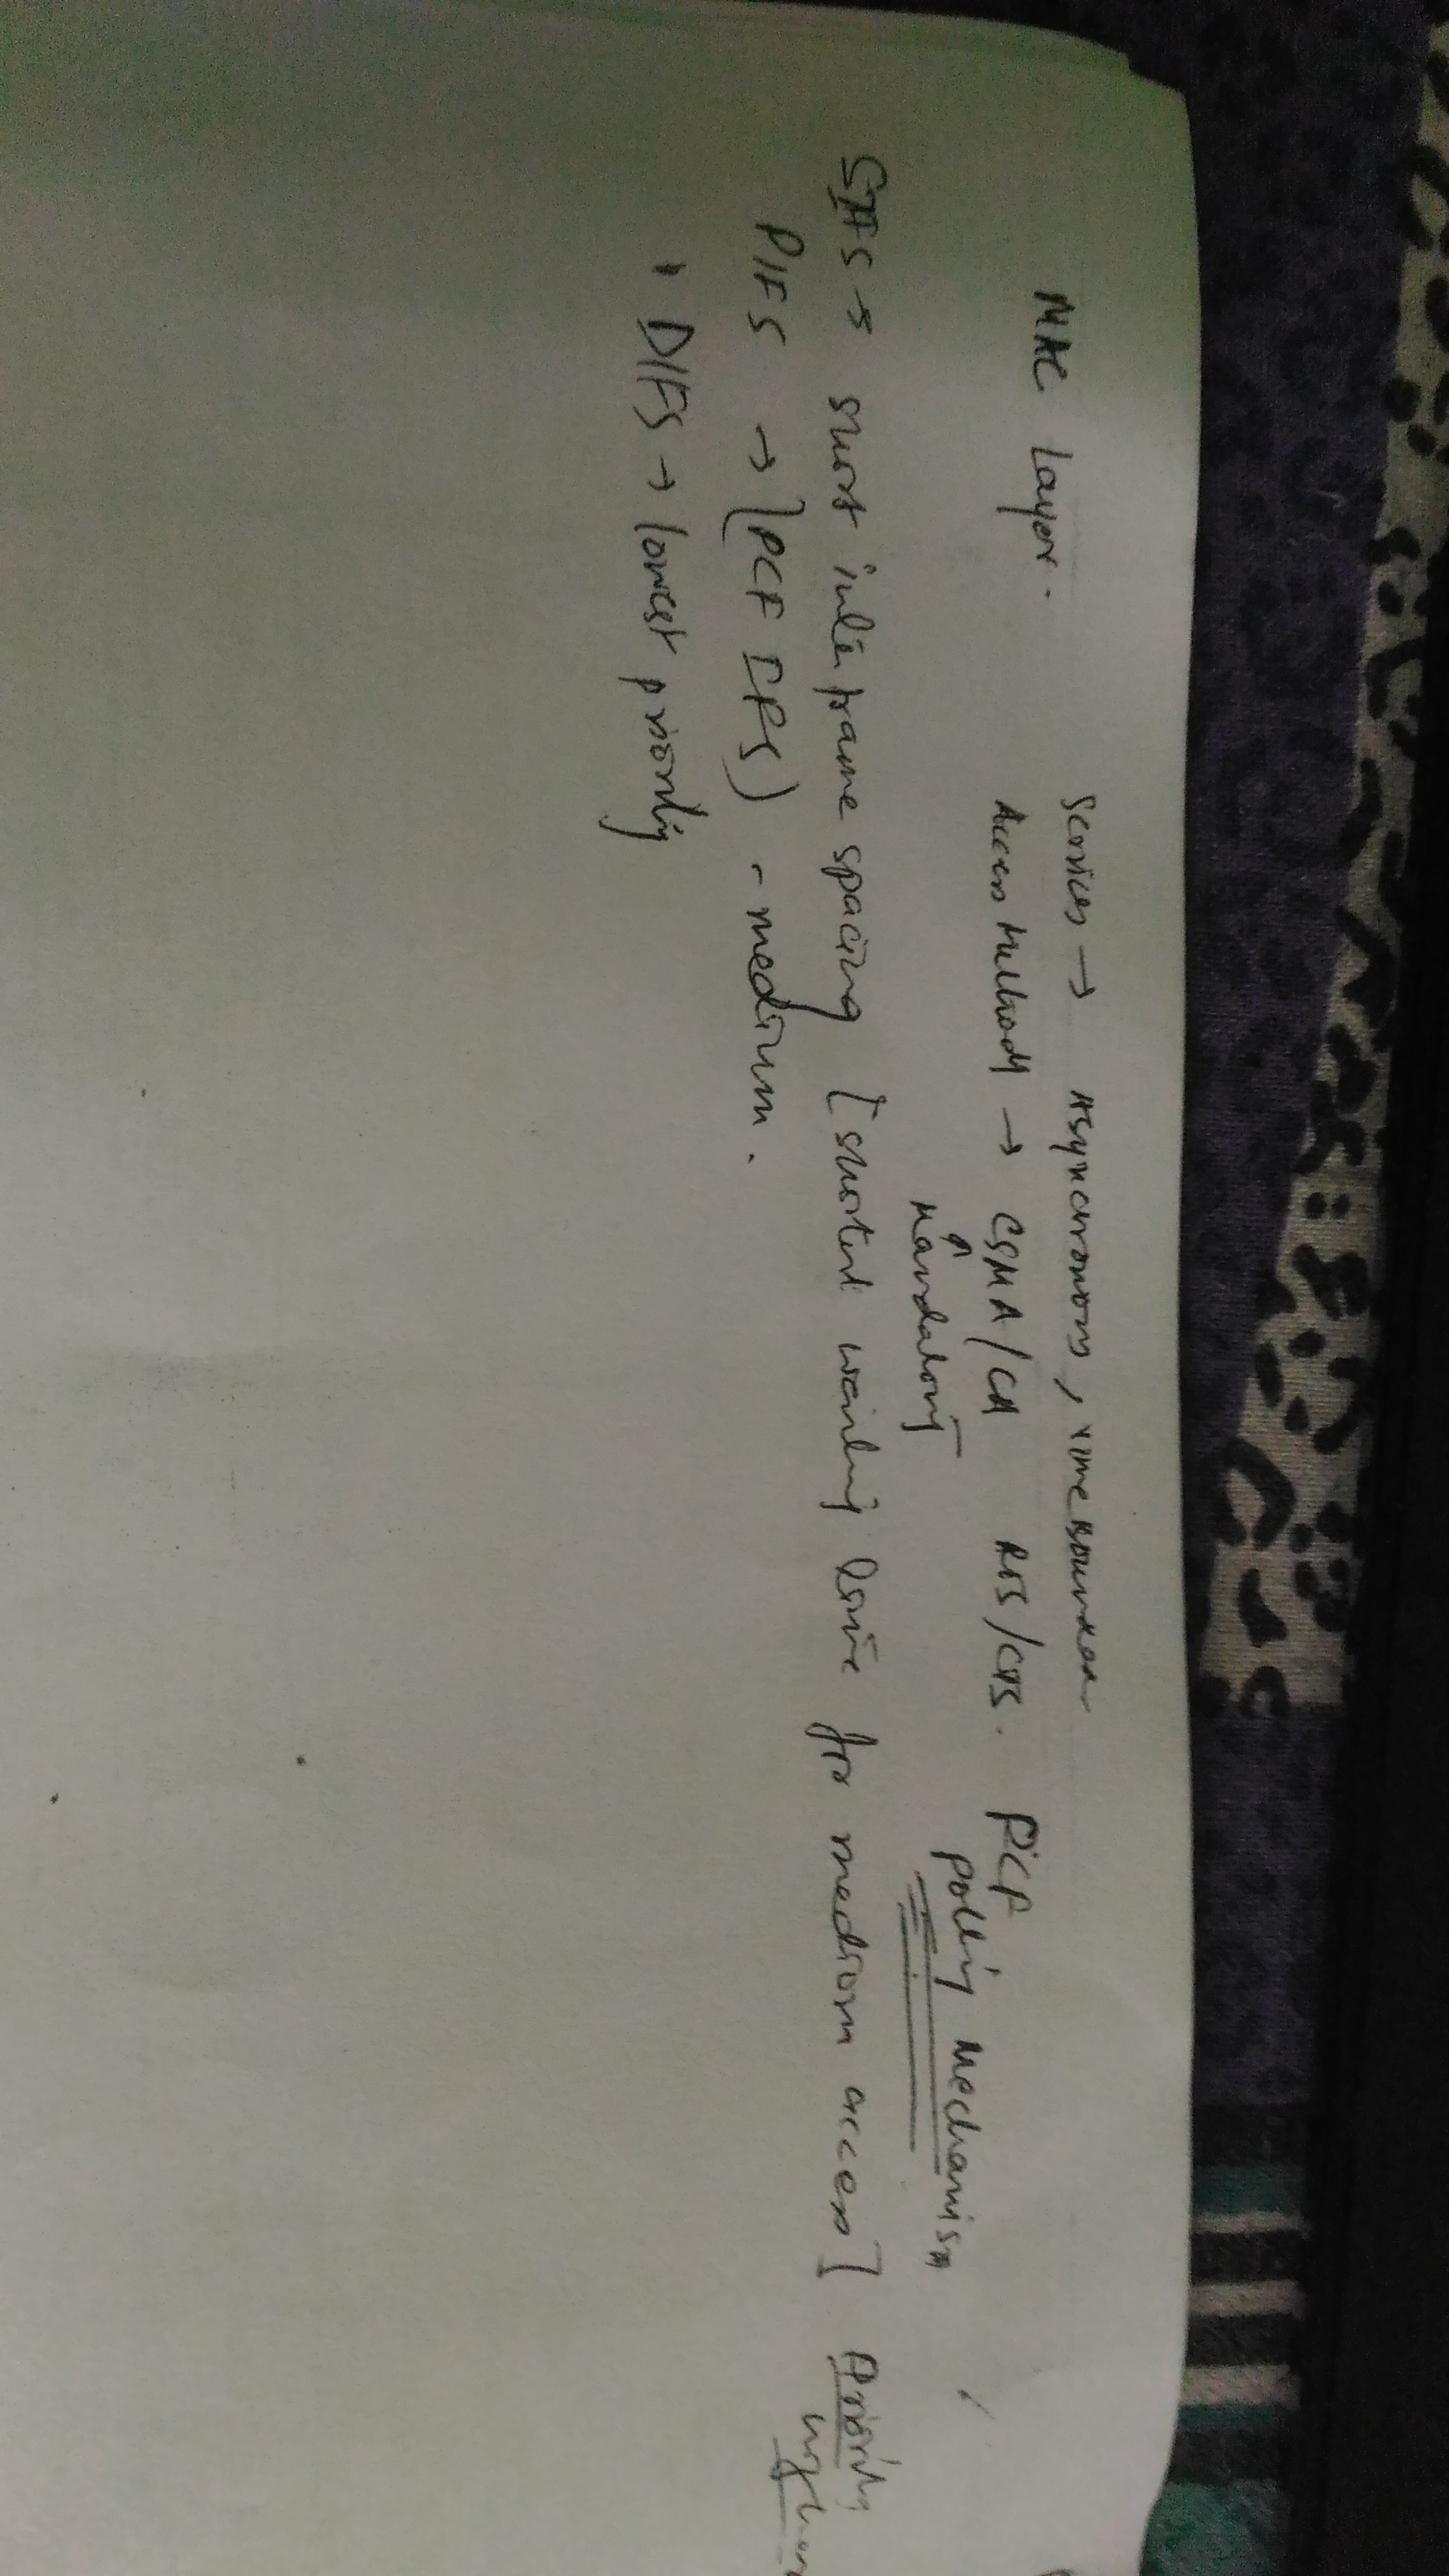 Services → Asynchronous, Time Bounded
MAC Layer. Access Methods → CSMA/CA RTS/CTS. PCF
Mandatory Polling Mechanism
SIFS → short inter frame spacing [shortest waiting time for medium access] Priority
highest
PIFS → (PCF IFS) - medium.
DIFS → lowest priority